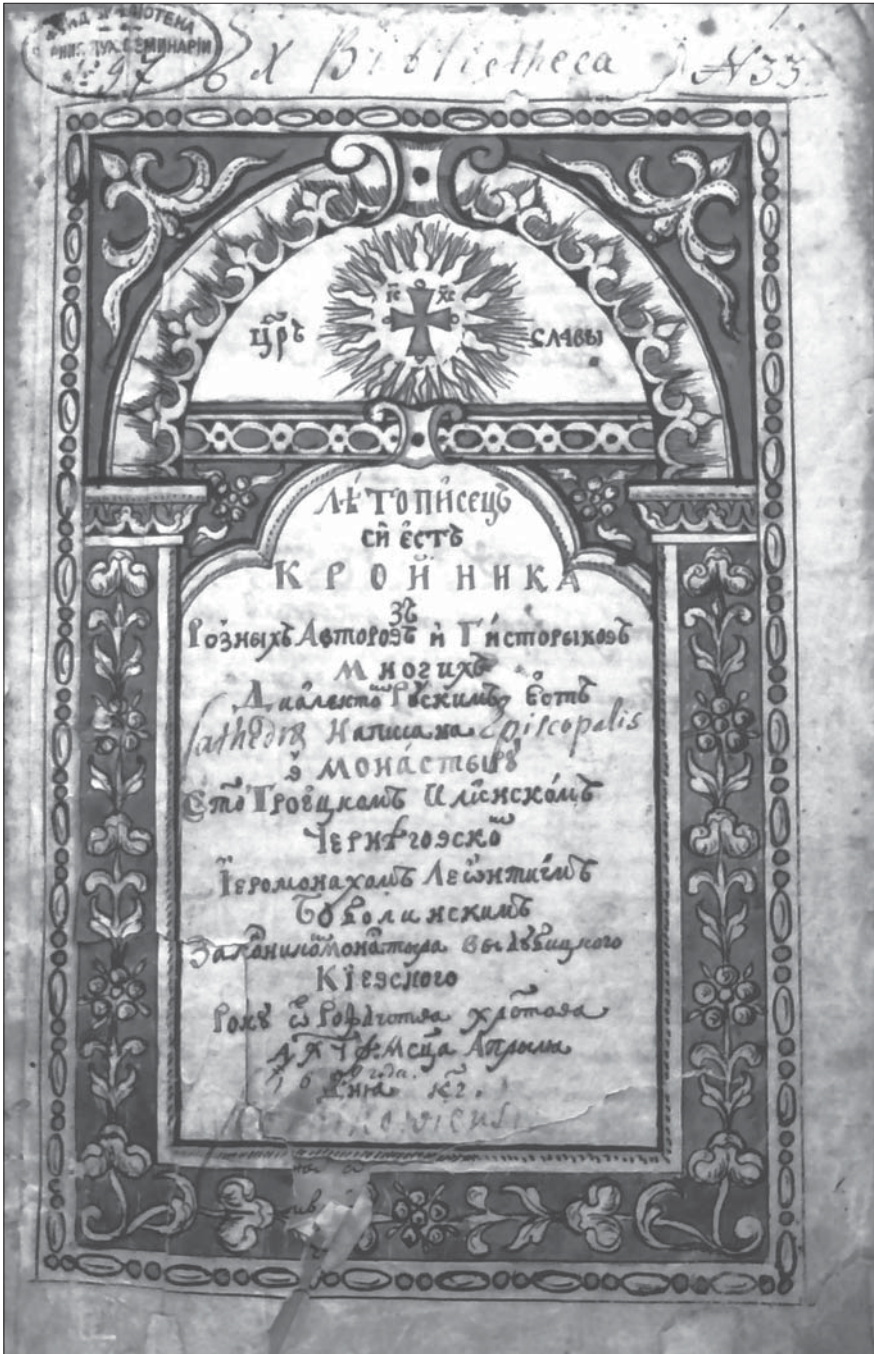 БИБЛІОТЕКА
ДУХ. СЕМИНАРІИ
№ 97
Bibliotheca N 33
І҃С Х҃С
Цр҃ъ славы
Лѣтописецъ
сій єстъ
КРОЙНИКА
зъ
Розныхъ Авторовъ и Гисторыковъ
Многихъ
Диалектом Руским Єстъ
Cathedra Написана Episcopalis
в монастыру
Троецкомъ Илинскомъ
Чернѣговском
Іеромонахомъ Леѡнтиемъ
Боболинскимъ
Законником монастыра Выдубицкого
Кіевского
Року ѿ Рождества Христова
Мсца Априля
года.
Дня кг.